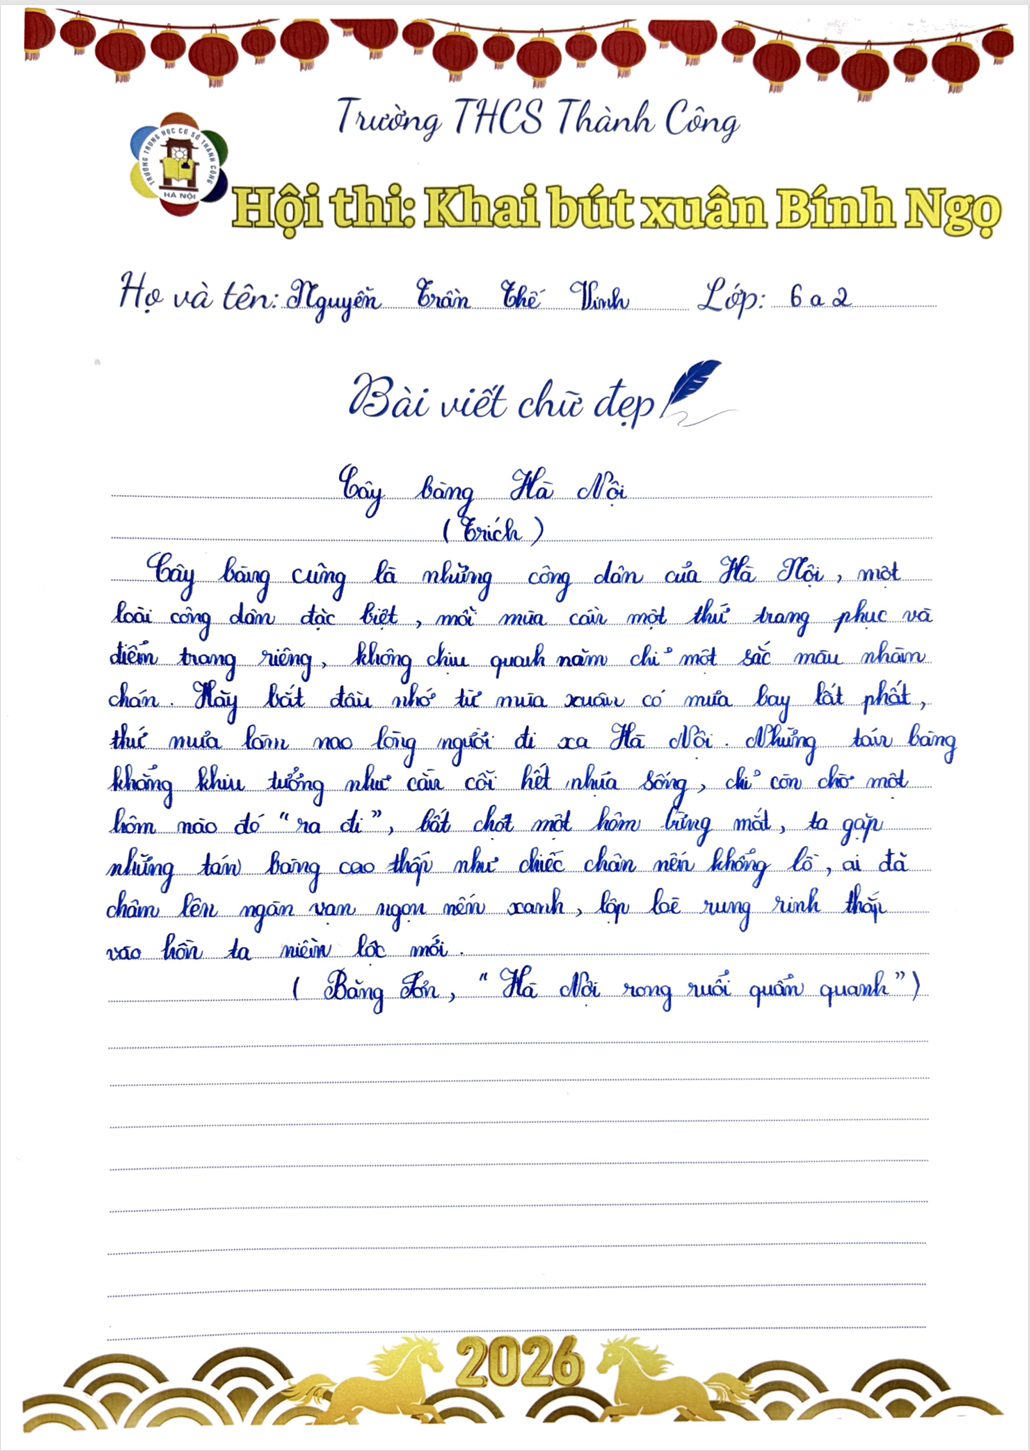 Trường THCS Thành Công
TRƯỜNG TRUNG HỌC CƠ SỞ THÀNH CÔNG
HÀ NỘI
Hội thi: Khai bút xuân Bính Ngọ
Họ và tên: Nguyễn Trần Thế Vinh Lớp: 6a2
Bài viết chữ đẹp
Cây bàng Hà Nội
(Trích)
Cây bàng cũng là những công dân của Hà Nội, một
loài công dân đặc biệt, mỗi mùa cần một thứ trang phục và
điểm trang riêng, không chịu quanh năm chỉ một sắc màu nhàm
chán. Hãy bắt đầu nhớ từ mùa xuân có mưa bay lất phất,
thứ mưa làm nao lòng người đi xa Hà Nội. Những tán bàng
khẳng khiu tưởng như cằn cỗi hết nhựa sống, chỉ còn chờ một
hôm nào đó "ra đi", bất chợt một hôm bừng mắt, ta gặp
những tán bàng cao thấp như chiếc chân nến khổng lồ, ai đã
châm lên ngàn vạn ngọn nến xanh, lập loè rung rinh thắp
vào hồn ta niềm lộc mới.
( Băng Sơn, "Hà Nội rong ruổi quẩn quanh")
2026